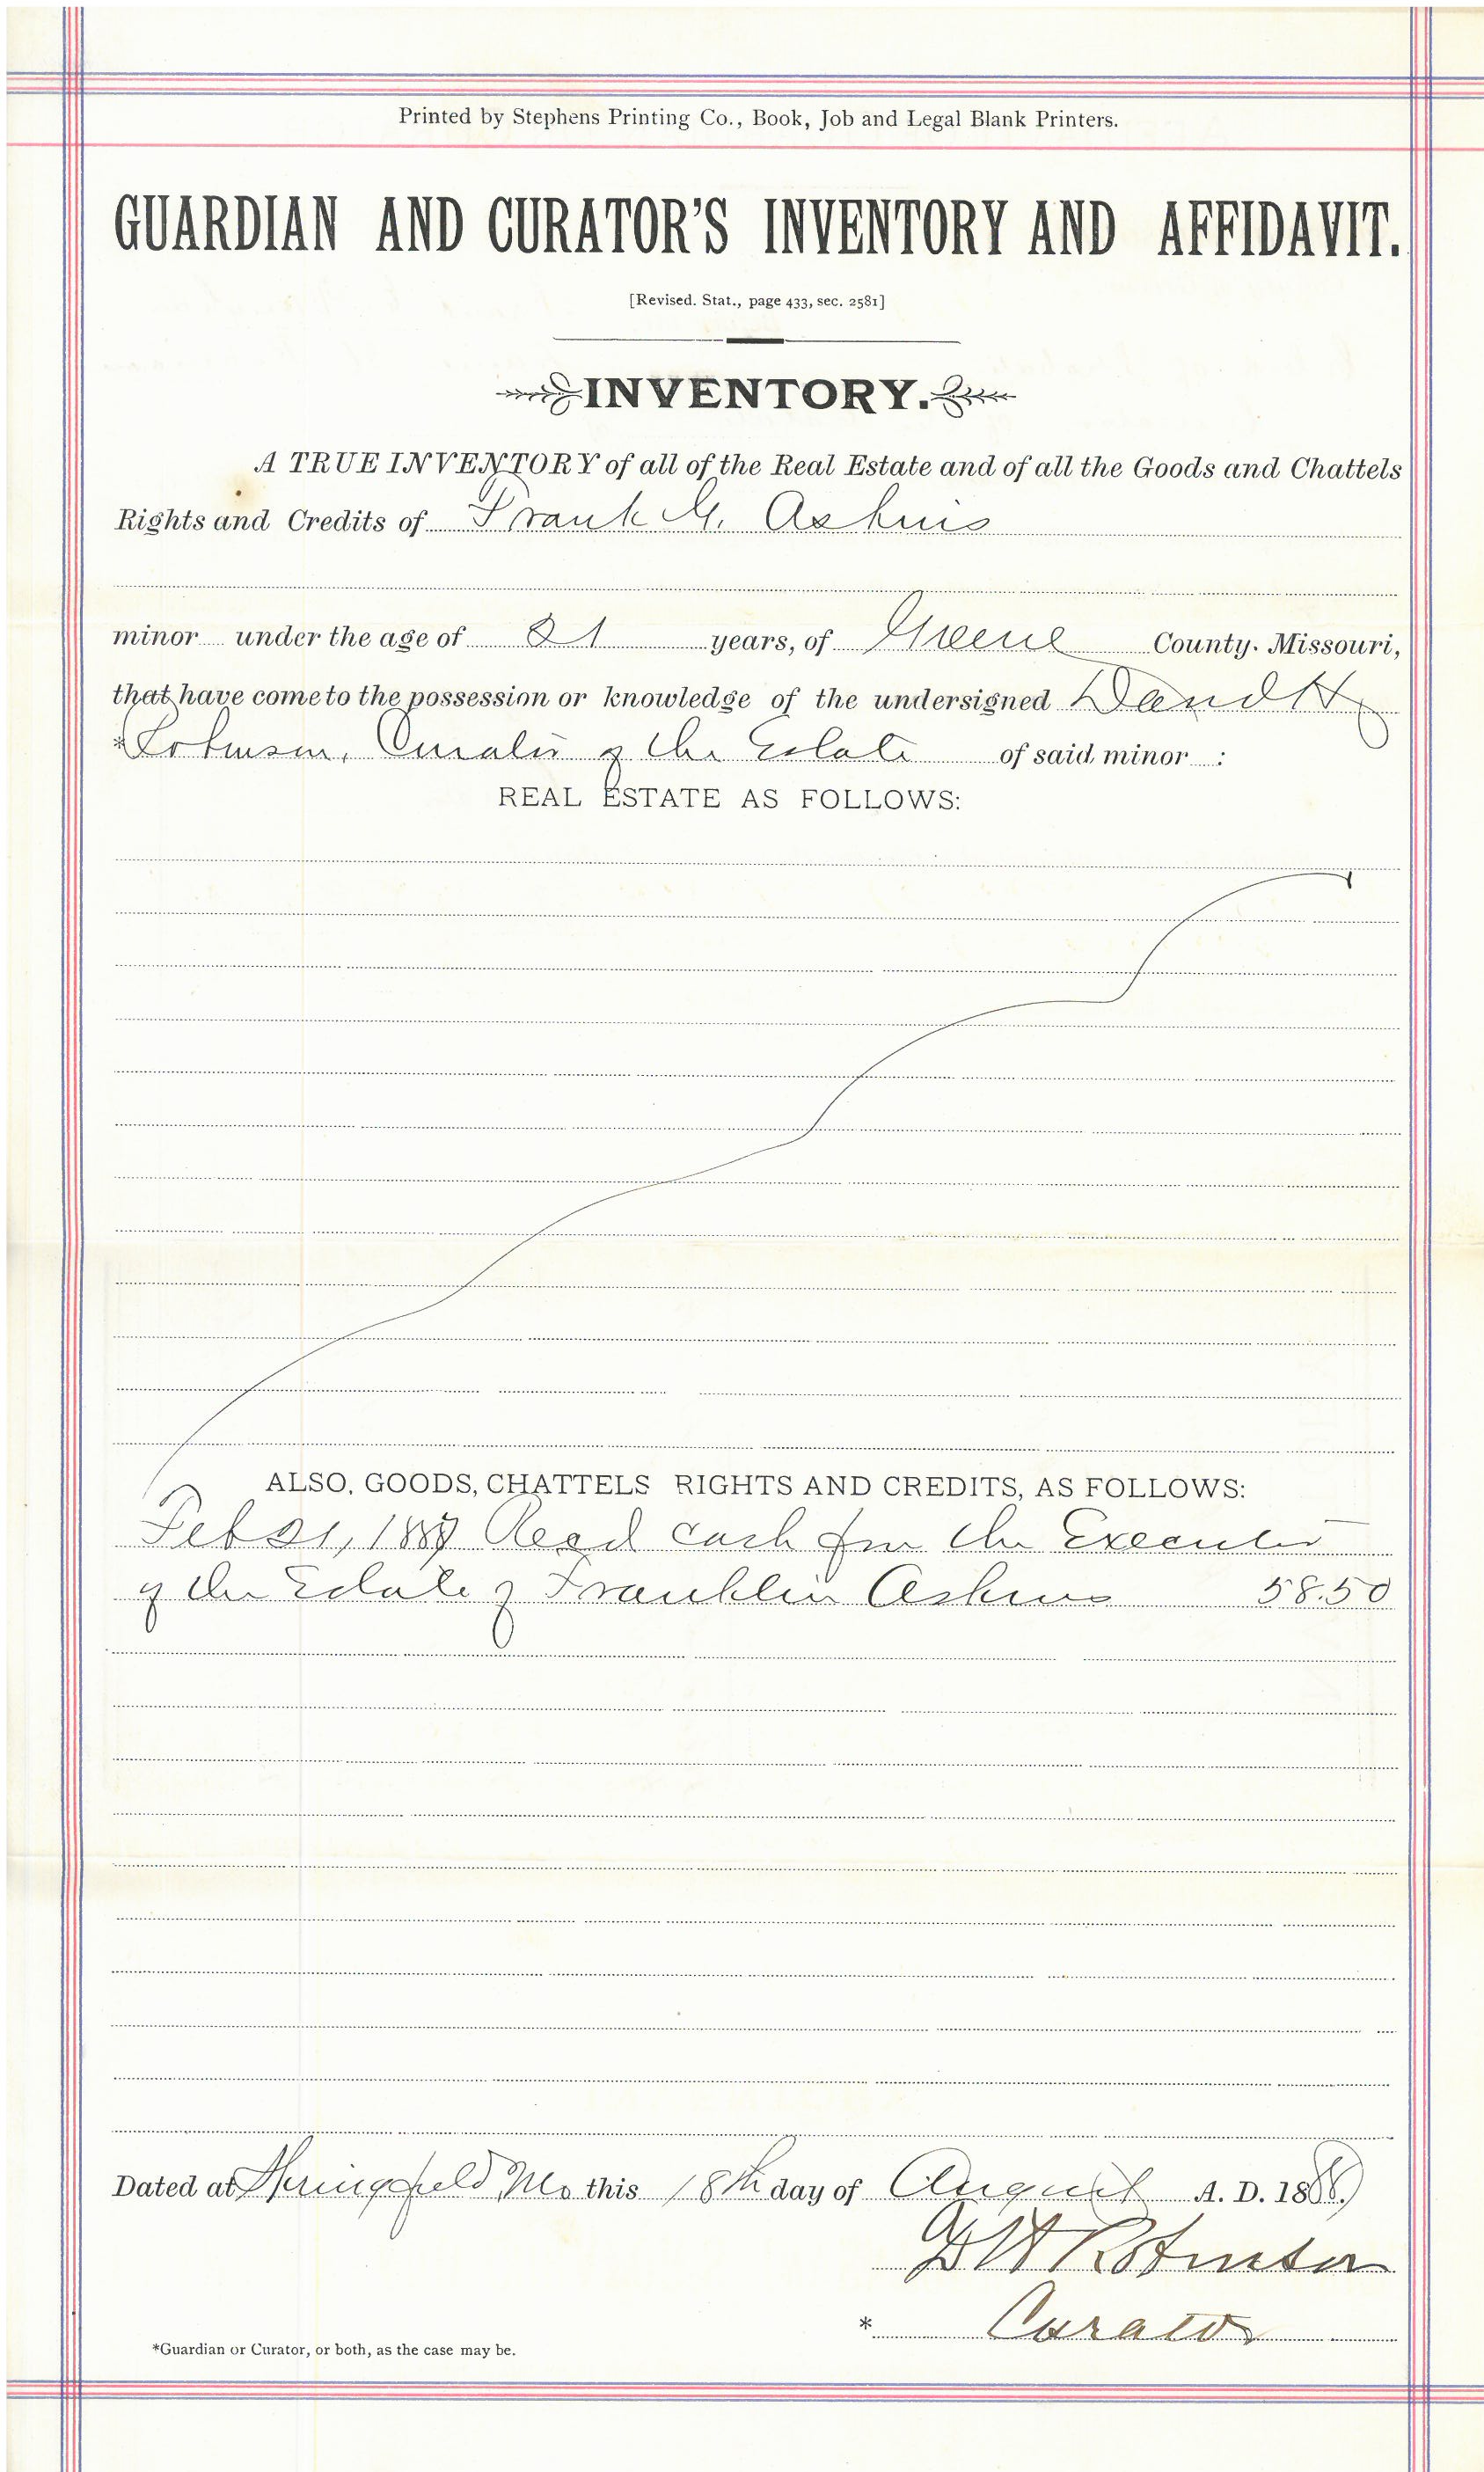 Printed by Stephens Printing Co., Book, Job and Legal Blank Printers.
GUARDIAN AND CURATOR'S INVENTORY AND AFFIDAVIT.
[Revised. Stat., page 433, sec. 2581]
INVENTORY.
A TRUE INVENTORY of all of the Real Estate and of all the Goods and Chattels
Rights and Credits of Frank G. Askins
minor under the age of 21 years, of Greene County. Missouri,
that have come to the possession or knowledge of the undersigned David H
*Robinson, Curator of the Estate of said minor :
REAL ESTATE AS FOLLOWS:
ALSO, GOODS, CHATTELS RIGHTS AND CREDITS, AS FOLLOWS:
Feb 21, Recd cash from the Executor
of the Estate of Franklin Askins 58.50
Dated at Springfield Mo this 18th day of August A. D. 1888.
D H Robinson
* Curator
*Guardian or Curator, or both, as the case may be.